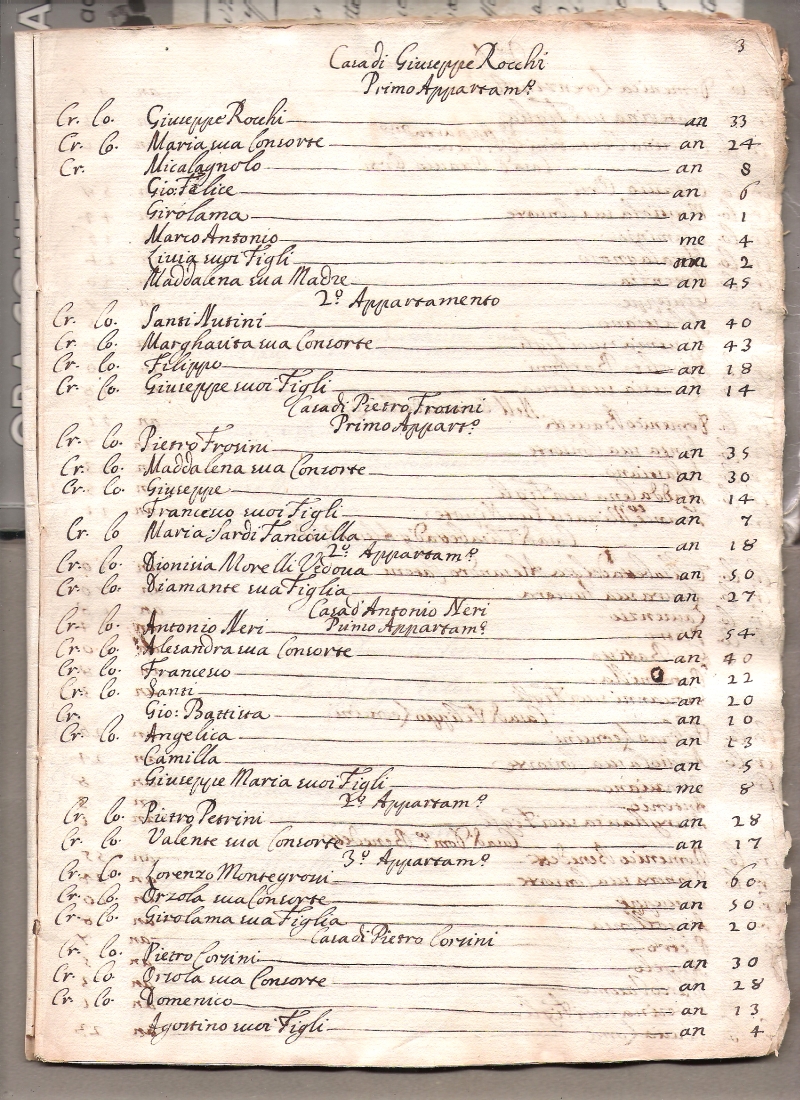 3
Casa di Giuseppe Rocchi
Primo Appartam.º
Cr. Co. Giuseppe Rocchi an 33
Cr. Co. Maria sua Consorte an 24
Cr. Micalagnolo an 8
Gio: Felice an 6
Girolama an 1
Marco Antonio me 4
Livia suoi Figli an 2
Maddalena sua Madre an 45
2.º Appartamento
Cr. Co. Santi Nutini an 40
Cr. Co. Margharita sua Consorte an 43
Cr. Co. Filippo an 18
Cr. Co. Giuseppe suoi Figli an 14
Casa di Pietro Frosini
Primo Appart.º
Cr. Co. Pietro Frosini an 35
Cr. Co. Maddalena sua Consorte an 30
Cr. Co. Giuseppe an 14
Francesco suoi Figli an 7
Cr. Co Maria Sardi Fanciulla an 18
2.º Appartam.º
Cr. Co. Dionisia Morelli Vedoua an 50
Cr. Co. Diamante sua Figlia an 27
Casa d'Antonio Neri
Primo Appartam.º
Cr. Co. Antonio Neri an 54
Cr. Co. Alesandra sua Consorte an 40
Cr. Co. Francesco an 22
Cr. Co. Santi an 20
Cr. Gio: Battista an 10
Cr. Co. Angelica an 13
Camilla an 5
Giuseppe Maria suoi Figli me 8
2.º Appartam.º
Cr. Co. Pietro Petrini an 28
Cr. Co. Valente sua Consorte an 17
3.º Appartam.º
Cr. Co. Lorenzo Montegrossi an 60
Cr. Co. Orsola sua Consorte an 50
Cr. Co. Girolama sua Figlia an 20
Casa di Pietro Corsini
Cr. Co. Pietro Corsini an 30
Cr. Co. Orsola sua Consorte an 28
Cr. Co. Domenico an 13
Agostino suoi Figli an 4